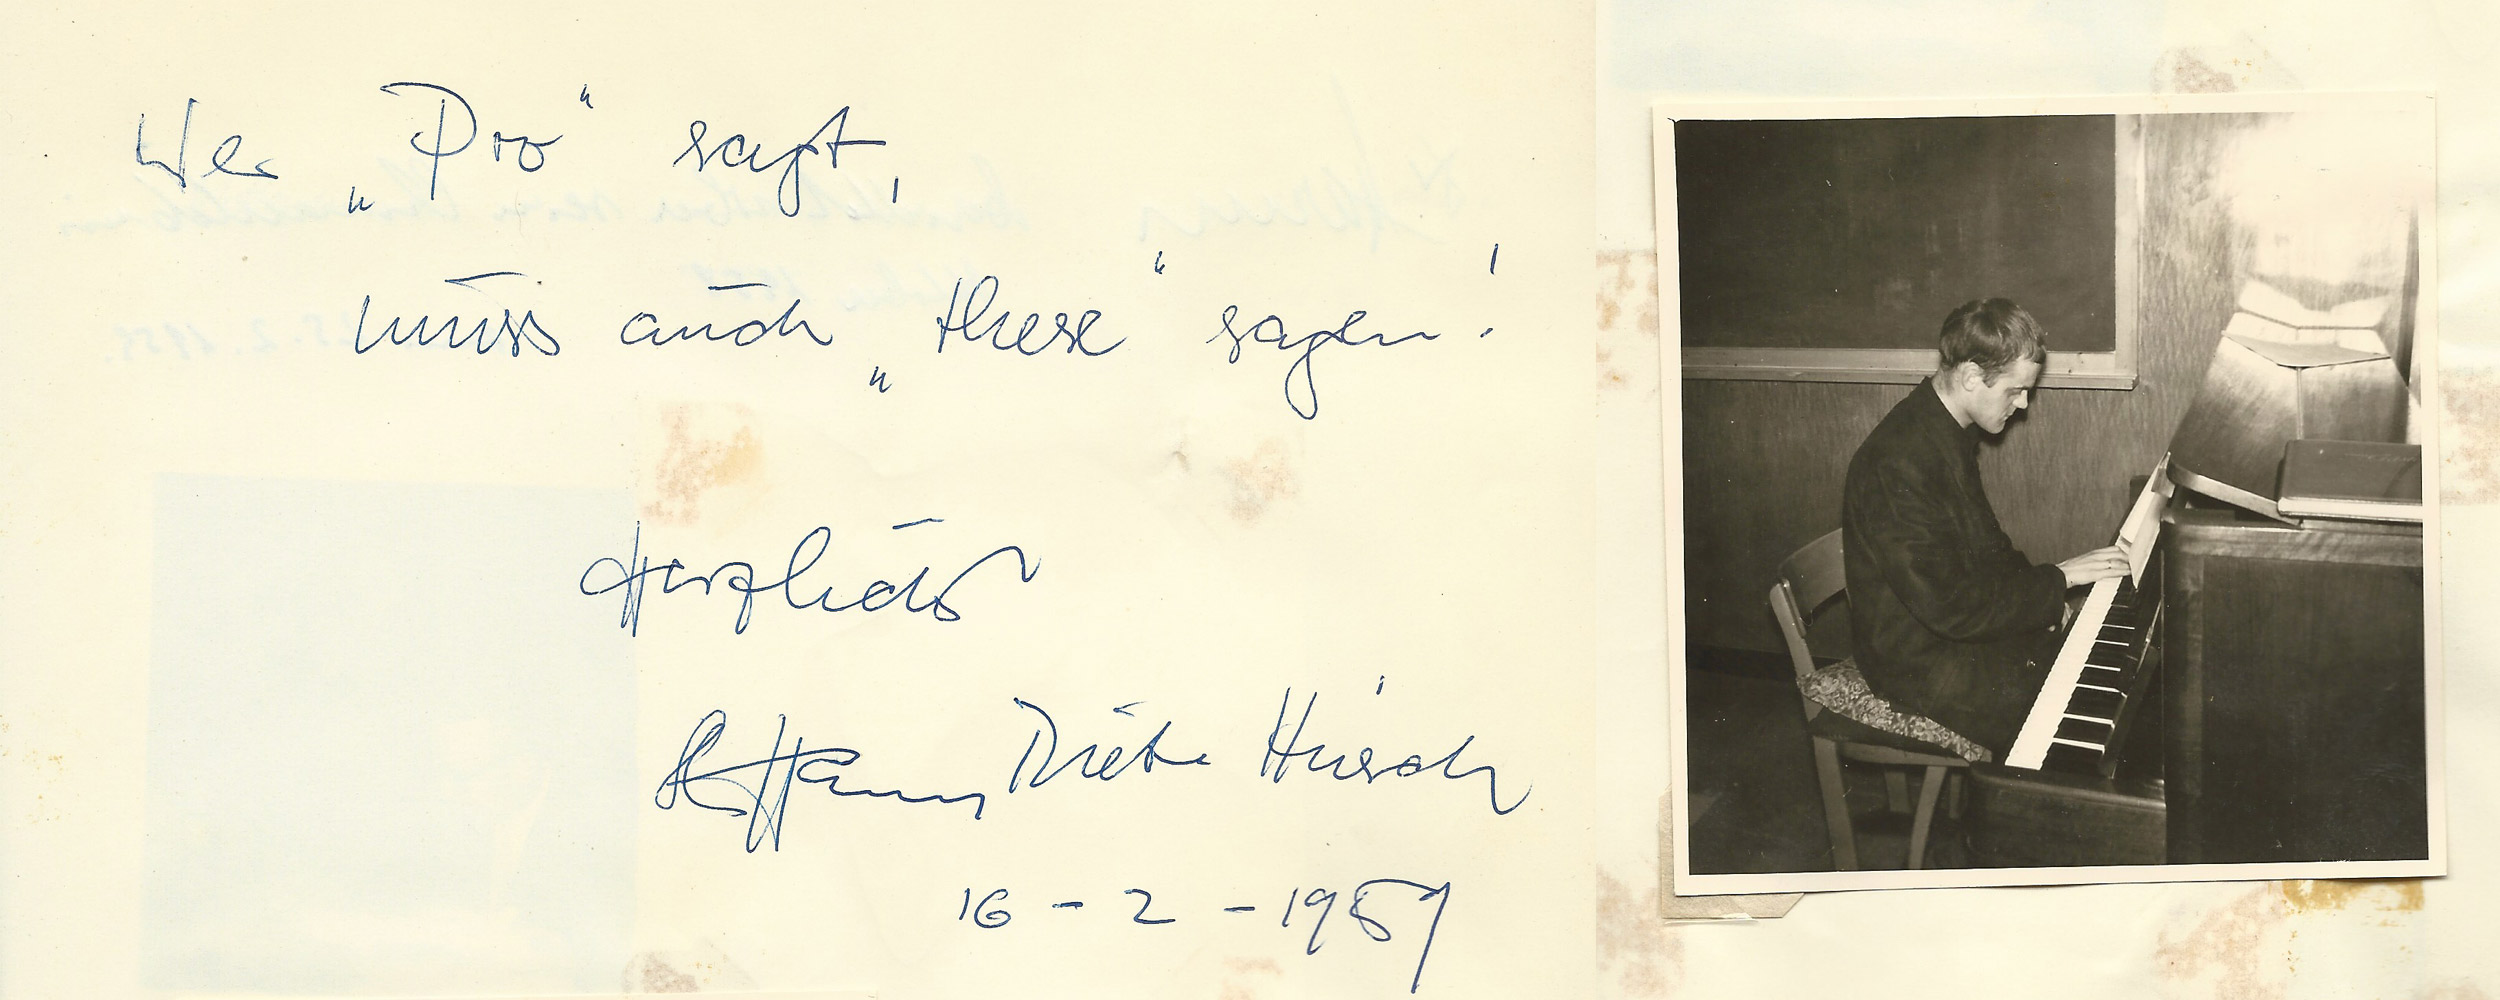 Wer „Pro“ sagt,
muss auch „these“ sagen!
Herzlichst
Hanns Dieter Hüsch
16 - 2 - 1959